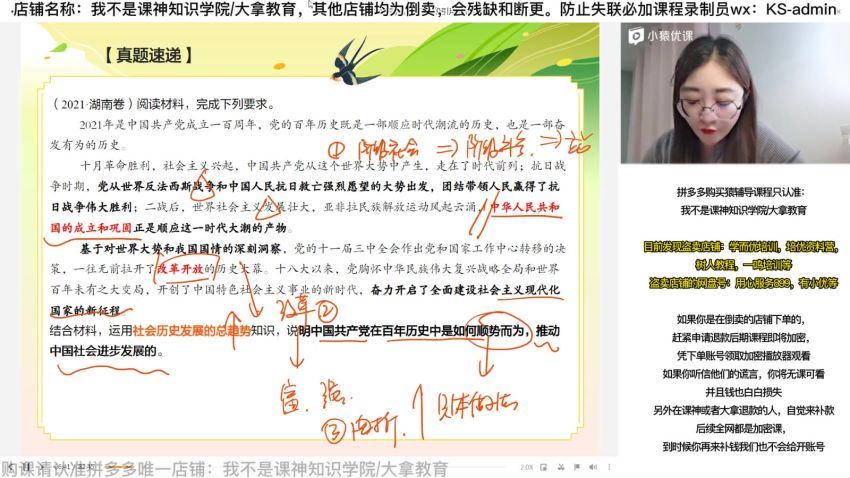 店铺名称：我不是课神知识学院/大拿教育，其他店铺均为倒卖，会残缺和断更。防止失联必加课程录制员wx：KS-admin
小猿优课
【真题速递】
（2021·湖南卷）阅读材料，完成下列要求。
2021年是中国共产党成立一百周年，党的百年历史既是一部顺应时代潮流的历史，也是一部奋
发有为的历史。
① 阶级社会 ⇒ 阶级斗争 ⇒
十月革命胜利，社会主义兴起，中国共产党从这个世界大势中产生，走在了时代前列；抗日战
争时期，党从世界反法西斯战争和中国人民抗日救亡强烈愿望的大势出发，团结带领人民赢得了抗
日战争伟大胜利；二战后，世界社会主义发展壮大，亚非拉民族解放运动风起云涌，中华人民共和
国的成立和巩固正是顺应这一时代大潮的产物。
基于对世界大势和我国国情的深刻洞察，党的十一届三中全会作出党和国家工作中心转移的决
策，一往无前拉开了改革开放的历史大幕。十八大以来，党胸怀中华民族伟大复兴战略全局和世界
百年未有之大变局，开创了中国特色社会主义事业的新时代，奋力开启了全面建设社会主义现代化
国家的新征程
改革②
结合材料，运用社会历史发展的总趋势知识，说明中国共产党在百年历史中是如何顺势而为，推动
中国社会进步发展的。
富、强。
③曲折.
具体做法
拼多多购买猿辅导课程只认准：
我不是课神知识学院/大拿教育
目前发现盗卖店铺：学而优培训，培优资料盟，
树人教程，一鸣培训等
盗卖店铺的网盘号：用心服务899，有小优等
如果你是在倒卖的店铺下单的，
赶紧申请退款后期课程即将加密，
凭下单账号领取加密播放器观看
如果你听信他们的谎言，你将无课可看
并且钱也白白损失
另外在课神或者大拿退款的人，自觉来补款
后续全网都是加密课，
到时候你再来补钱我们也不会给开账号
购课请认准拼多多唯一店铺：我不是课神知识学院/大拿教育
2.0X